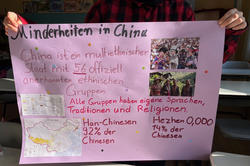 Minderheiten in China
China ist ein multiethnischer
Staat mit 56 offiziell
anerkannten ethnischen
Gruppen
Alle Gruppen haben eigene Sprachen,
Traditionen und Religionen.
Han-Chinesen
92% der
Chinesen
Hezhen 0,000
14% der
Chinesen